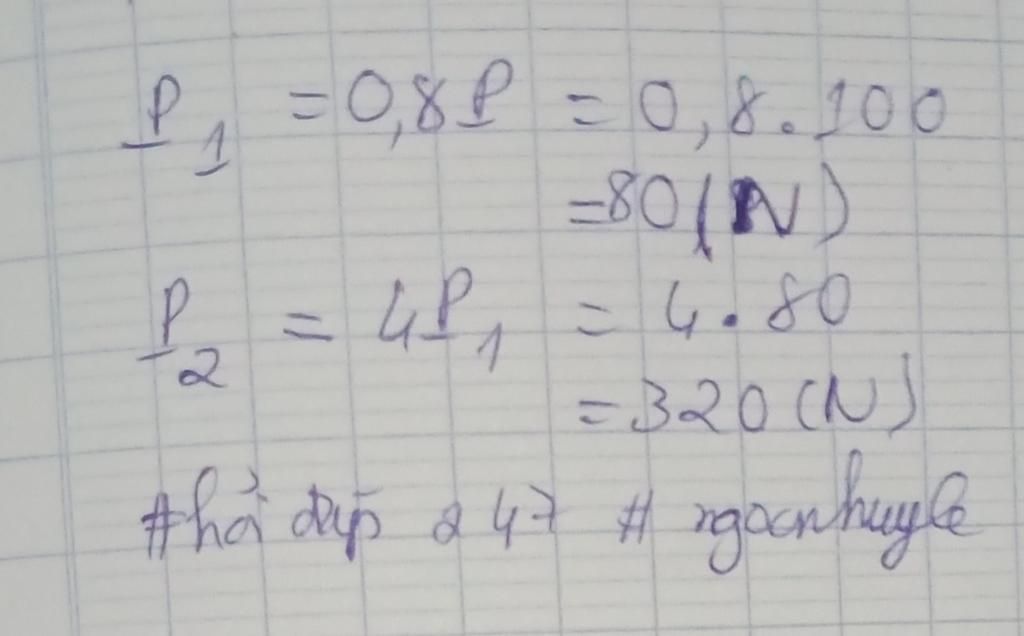 P₁ = 0,8P = 0,8.100
=80(N)
P₂ = 4P₁ = 4.80
=320(N)
#hỏi đáp 247 # ngocnhuyle